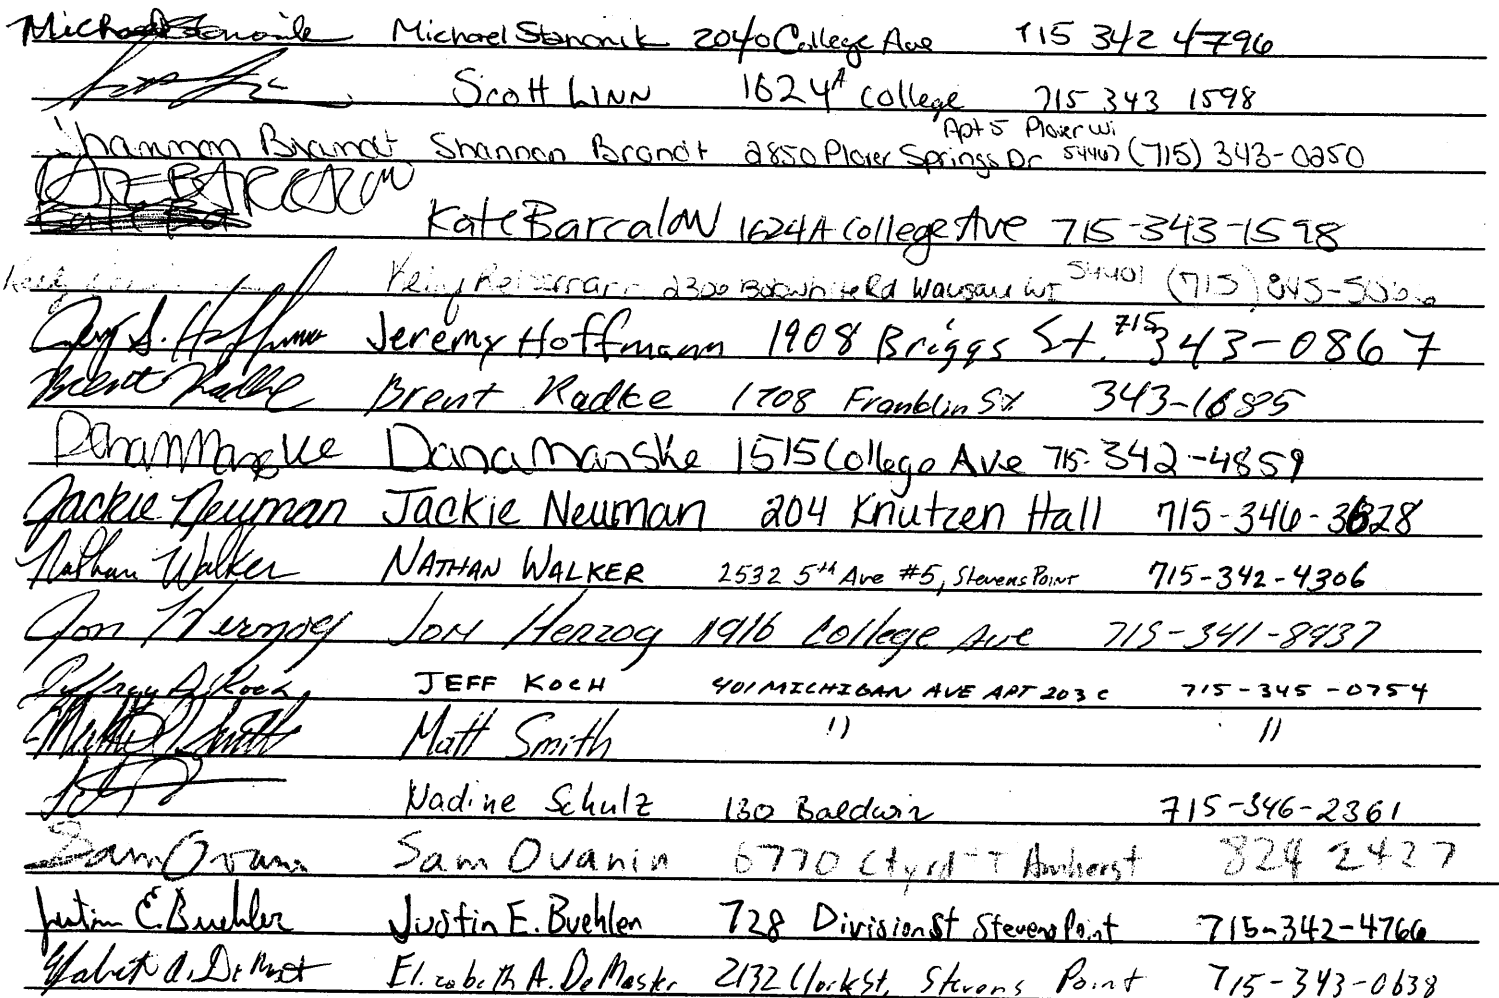 Michael Stanonik 2040 College Ave 715 342 4796
Scott LINN 1624A College 715 343 1598
Apt 5 Plover Wi
Shannon Brandt Shannon Brandt 2850 Plover Springs Dr 54467 (715) 343-0250
KATE BARCALOW
Kate Barcalow 1624A College Ave 715-343-1598
Kelly 2300 Bobwhite Rd Wausau WI 54401 (715) 845-
Jeremy Hoffmann 1908 Briggs St. 715 343-0867
Brent Radke Brent Radke 1708 Franklin St 343-1685
Dana M Manske Dana Manske 1515 College Ave 715-342-4859
Jackie Neuman Jackie Neuman 204 Knutzen Hall 715-346-3628
Nathan Walker NATHAN WALKER 2532 5th Ave #5, Stevens Point 715-342-4306
Jon Herzog Jon Herzog 1916 College Ave 715-341-8937
Jeffrey A. Koch JEFF KOCH 401 MICHIGAN AVE APT 203 C 715-345-0754
Matt Smith " "
Nadine Schulz 130 Baldwin 715-346-2361
Sam Ovanin Sam Ovanin 6770 Cty rd T Amherst 824 2427
Justin E. Buehler Justin E. Buehler 728 Division St Stevens Point 715-342-4766
Elizabeth A. DeMaster 2132 Clark St, Stevens Point 715-343-0638